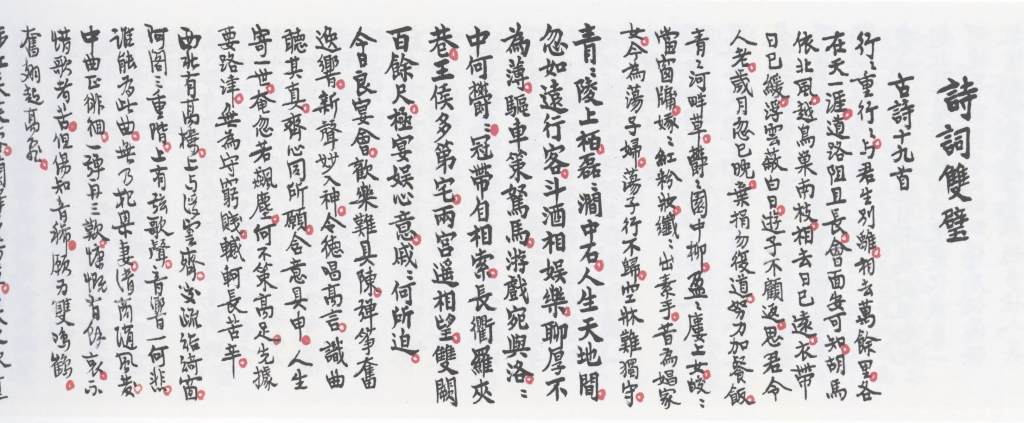 詩詞雙璧
古詩十九首
行〻重行〻与君生別離相去萬餘里各
在天一涯道路阻且長會面安可知胡馬
依北風越鳥巢南枝相去日已遠衣帶
日已緩浮雲蔽白日遊子不顧返思君令
人老歲月忽已晚棄捐勿復道努力加餐飯
青〻河畔草鬱〻園中柳盈〻廔上女皎〻
當窗牖娥〻紅粉妝纖〻出素手昔為娼家
女今為蕩子婦蕩子行不歸空牀難獨守
青〻陵上栢磊〻澗中石人生天地間
忽如遠行客斗酒相娛樂聊厚不
為薄驅車策駑馬游戲宛與洛〻
中何鬱〻冠帶自相索長衢羅夾
巷王侯多第宅兩宮遥相望雙闕
百餘尺極宴娛心意戚〻何所迫
今日良宴會歡樂難具陳彈箏奮
逸響新聲妙入神令德唱高言識曲
聽其真齊心同所願含意具申人生
寄一世奄忽若飆塵何不策高足先據
要路津無為守窮賤轗軻長苦辛
西北有高樓上与浮雲齊交流結綺窗
阿閣三重階上有弦歌聲音響一何悲
誰能為此曲無乃杞梁妻清商隨風發
中曲正徘徊一彈再三歎慷慨有餘哀不
惜歌者苦但傷知音稀願為雙鳴鶴
奮翅起高飛